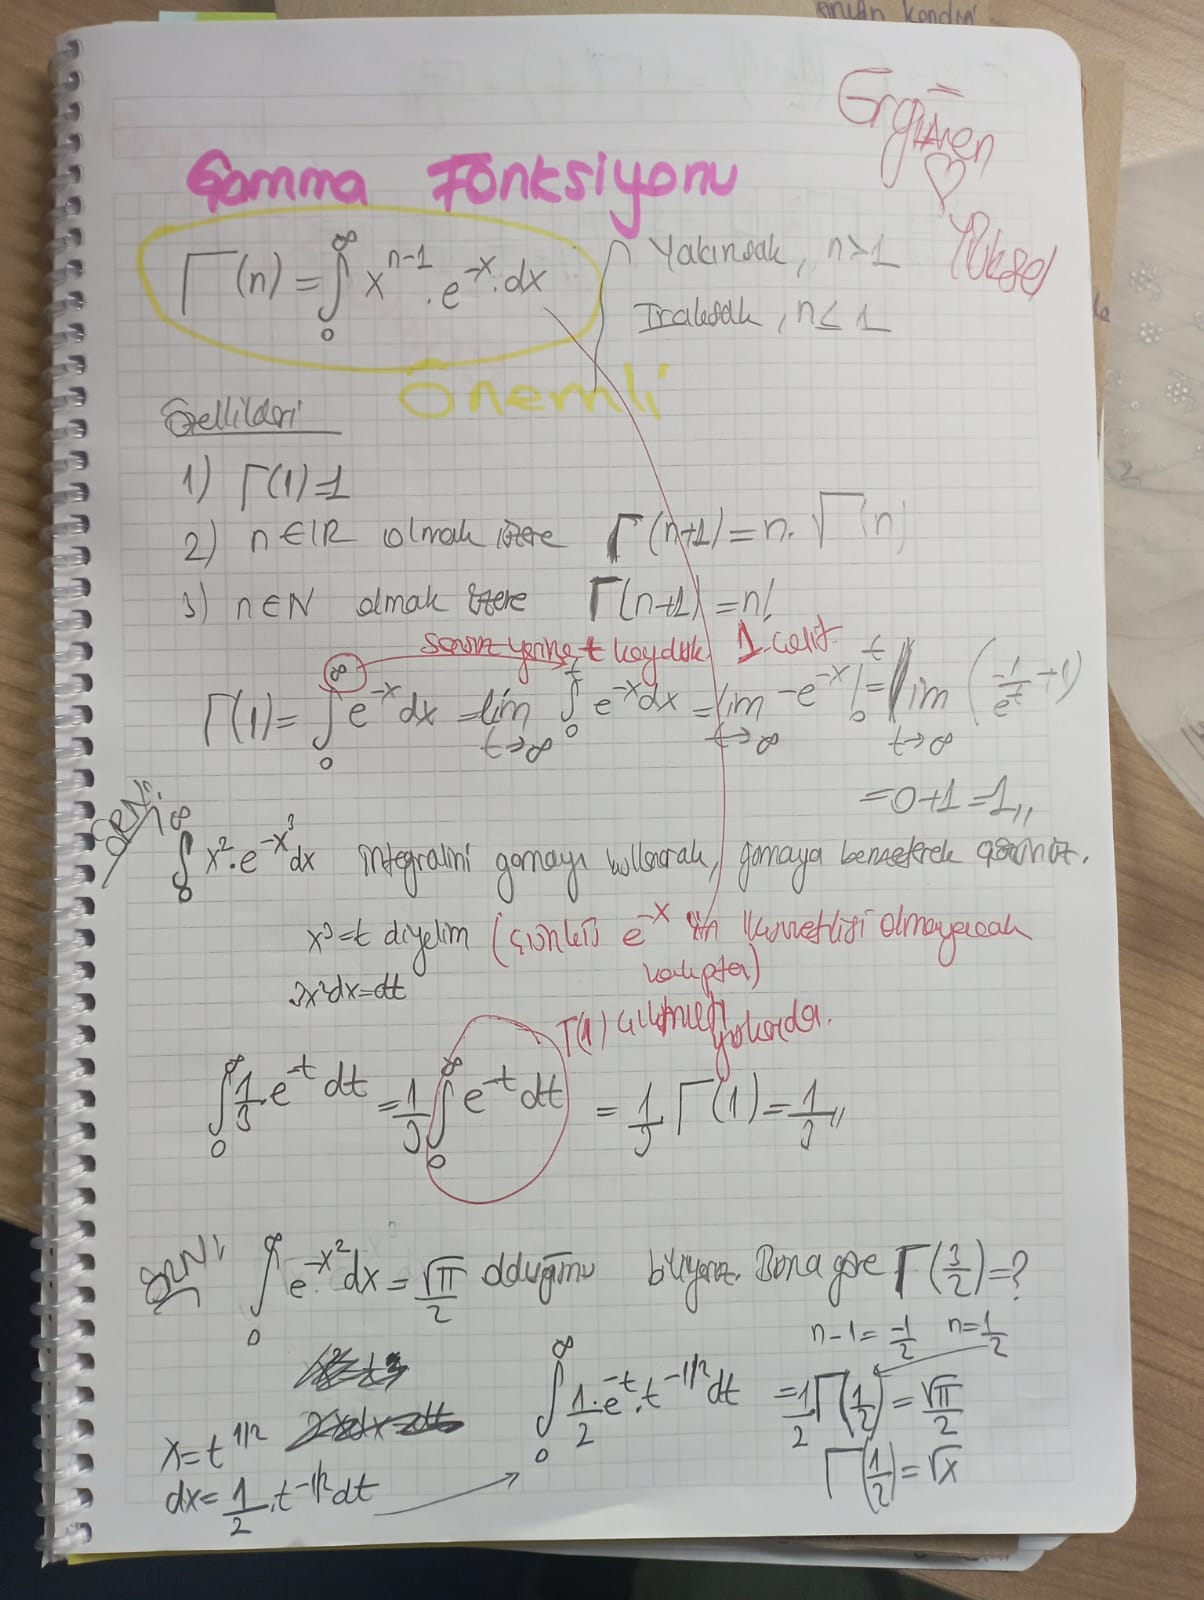 Ergüven
♡
Yüksel
Gamma Fonksiyonu
Γ(n) = ∫₀^∞ x^(n-1) . e^(-x) . dx
Yakınsak, n>1
Iraksak, n≤1
Önemli
Özellikleri
1) Γ(1)=1
2) n∈IR olmak üzere Γ(n+1)=n.Γ(n)
3) n∈N olmak üzere Γ(n+1)=n!
yerine t koyduk
Γ(1) = ∫₀^∞ e^(-x) dx = lim t→∞ ∫₀^t e^(-x) dx = lim t→∞ -e^(-x) |₀^t = lim t→∞ (-1/e^t +1)
=0+1=1,,
ÖRN:
∫₀^∞ x².e^(-x³) dx integralini gamayı kullanarak, gamaya benzeterek çözünüz.
x³=t diyelim (çünkü e^(-x) in kuvvetlisi olmayacak
kalıpta)
3x²dx=dt
Γ(1) yukarda.
∫₀^∞ 1/3 . e^(-t) dt = 1/3 ∫₀^∞ e^(-t) dt = 1/3 Γ(1) = 1/3,,
ÖRN:
∫₀^∞ e^(-x²) dx = √π/2 olduğunu biliyoruz. Buna göre Γ(3/2)=?
n-1 = -1/2 n=1/2
∫₀^∞ 1/2 . e^(-t) . t^(-1/2) dt = 1/2 Γ(1/2) = √π/2
x=t^(1/2)
Γ(1/2) = √x
dx = 1/2 . t^(-1/2) dt